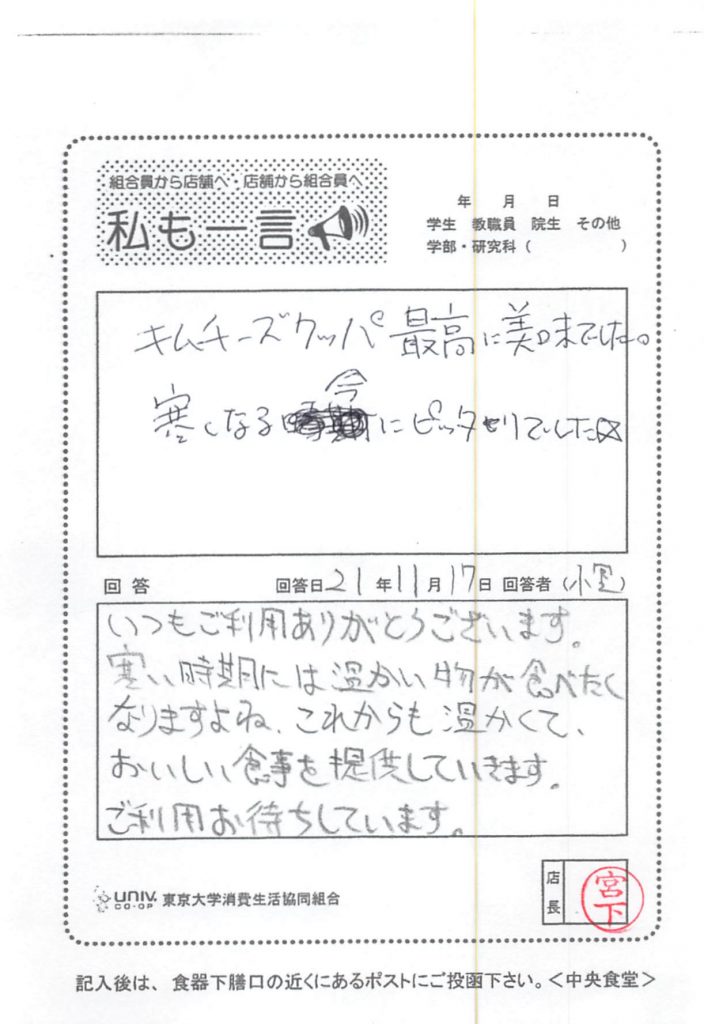 組合員から店舗へ・店舗から組合員へ
私も一言
年 月 日
学生 教職員 院生 その他
学部・研究科 ( )
キムチーズクッパ 最高に美味でした。
今
寒くなる にピッタリでした
回答 回答日 21 年 11 月 17 日 回答者 ( )
いつもご利用ありがとうございます。
寒い時期には温かい物が食べたく
なりますよね、これからも温かくて、
おいしい食事を提供していきます。
ご利用お待ちしています。
UNIV. CO-OP 東京大学消費生活協同組合
店長 宮下
記入後は、食器下膳口の近くにあるポストにご投函下さい。<中央食堂>